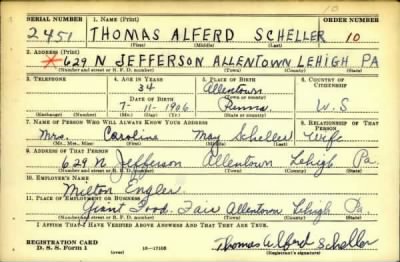 10
SERIAL NUMBER 1. NAME (Print) ORDER NUMBER
2451 THOMAS ALFERD SCHELLER 10
(First) (Middle) (Last)
2. ADDRESS (Print)
629 N JEFFERSON ALLENTOWN LEHIGH PA
(Number and street or R. F. D. number) (Town) (County) (State)
3. TELEPHONE 4. AGE IN YEARS 5. PLACE OF BIRTH 6. COUNTRY OF CITIZENSHIP
34 Allentown
DATE OF BIRTH (Town or county)
7-11-1906 Penna. U.S
(Exchange) (No.) (Mo.) (Day) (Yr.) (State or country)
7. NAME OF PERSON WHO WILL ALWAYS KNOW YOUR ADDRESS 8. RELATIONSHIP OF THAT PERSON
Mrs. Caroline May Scheller Wife
(Mr., Mrs., Miss) (First) (Middle) (Last)
9. ADDRESS OF THAT PERSON
629 N Jefferson Allentown Lehigh Pa.
(Number and street or R. F. D. number) (Town) (County) (State)
10. EMPLOYER'S NAME
Milton Engler
11. PLACE OF EMPLOYMENT OR BUSINESS
Giant Food Fair Allentown Lehigh Pa.
(Number and street or R. F. D. number) (Town) (County) (State)
I AFFIRM THAT I HAVE VERIFIED ABOVE ANSWERS AND THAT THEY ARE TRUE.
REGISTRATION CARD
D. S. S. Form 1 (over) 16—17105 Thomas Alferd Scheller
(Registrant's signature)